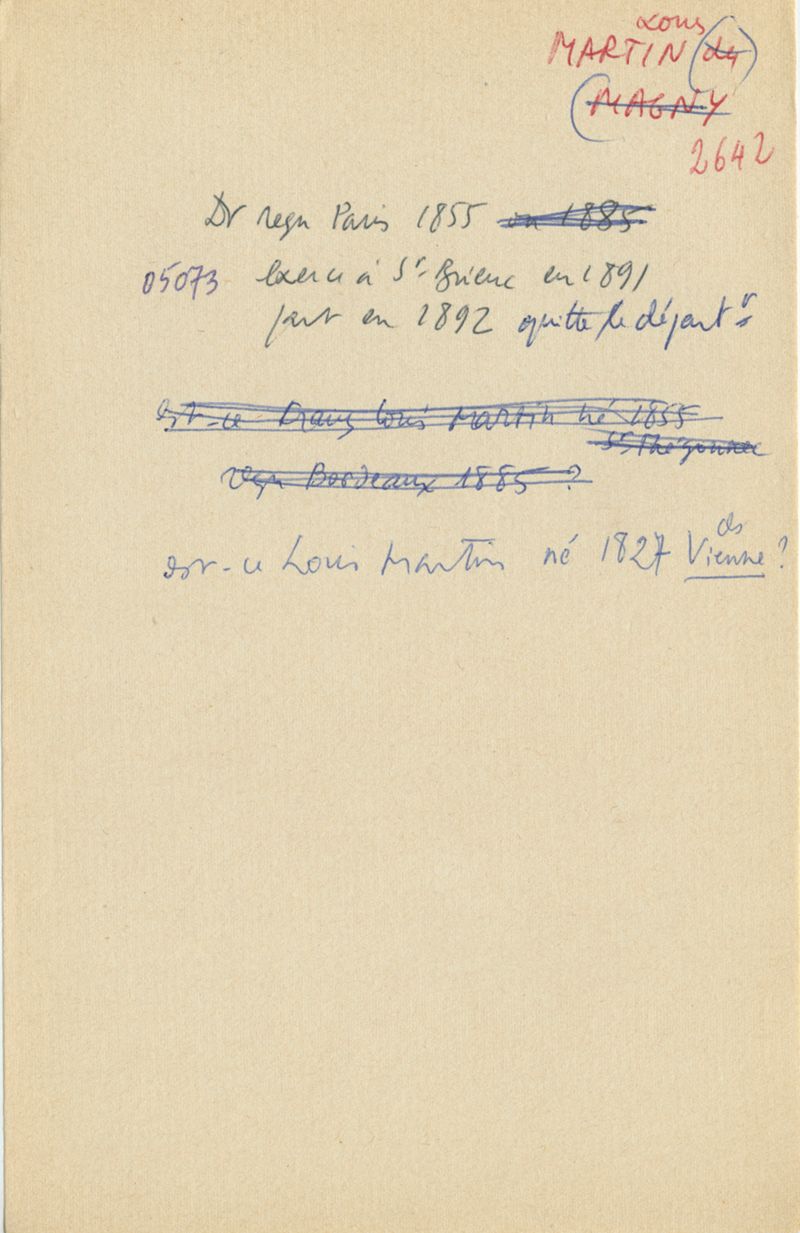 Louis
MARTIN (de
(MAGNY
2642
Dr reçu Paris 1855 ou 1885
05073 exerce à St-Brieuc en 1891
part en 1892 quitte le départt
est-ce Louis Martin né 1855
St Thégonnec
reçu Bordeaux 1885 ?
ds
est-ce Louis Martin né 1827 Vienne ?